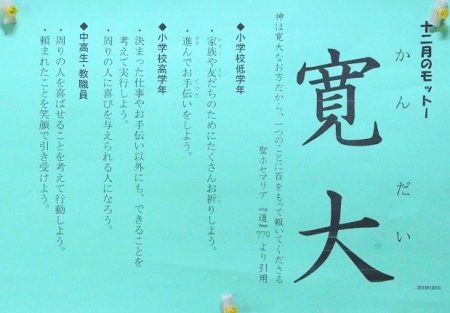 十二月のモットー
かんだい
寛大
神は寛大なお方だから、一つのことに百をもって報いてくださる
聖ホセマリア 『道』779 より引用
◆小学校低学年
・家族や友だちのためにたくさんお祈りしよう。
・進んでお手伝いをしよう。
◆小学校高学年
・決まった仕事やお手伝い以外にも、できることを
考えて実行しよう。
・周りの人に喜びを与えられる人になろう。
◆中高生・教職員
・周りの人を喜ばせることを考えて行動しよう。
・頼まれたことを笑顔で引き受けよう。